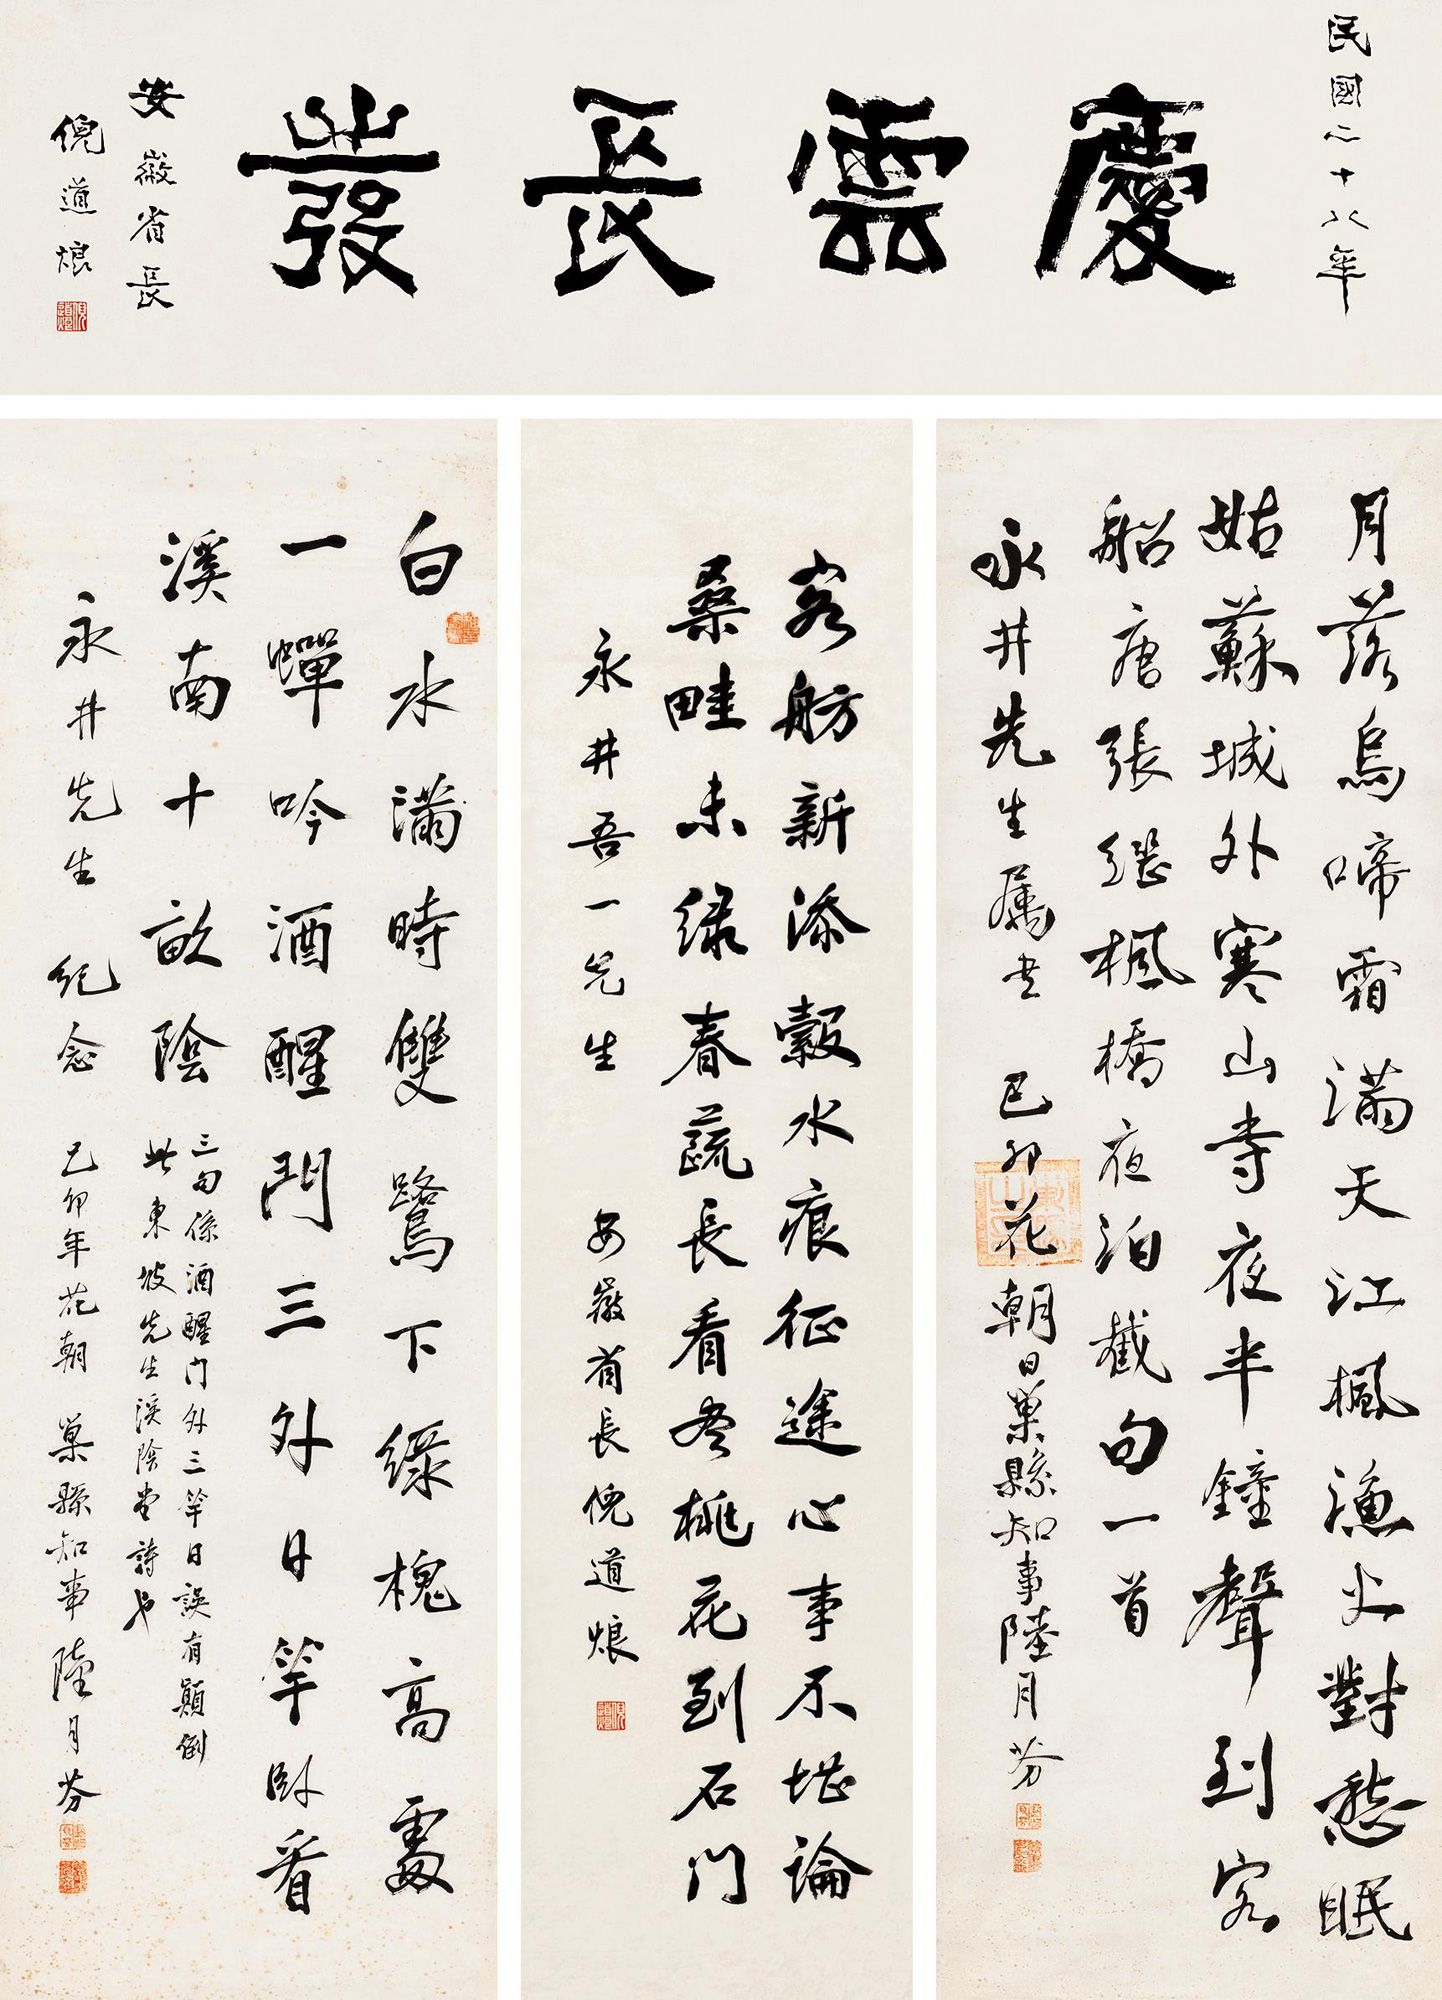 民國二十八年
慶雲長發
安徽省長
倪道烺
倪道烺
月落烏啼霜滿天江楓漁火對愁眠
姑蘇城外寒山寺夜半鐘聲到客
船唐張繼楓橋夜泊截句一首
永井先生属书 己卯花朝日巢縣知事陸月芬
客舫新添縠水痕征途心事不堪論
桑畦未绿春蔬長看尽桃花到石门
永井吾一先生 安徽省長倪道烺
倪道烺
白水滿時雙鷺下綠槐高處
一蟬吟酒醒門三外日竿卧看
溪南十畝陰
三句係酒醒门外三竿日误有顛倒
此東坡先生溪陰堂詩也
永井先生 纪念 己卯年花朝 巢縣知事陸月芬